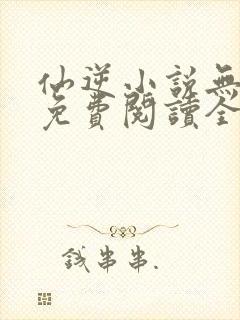 仙逆小說無
免費閱讀全
錢串串.